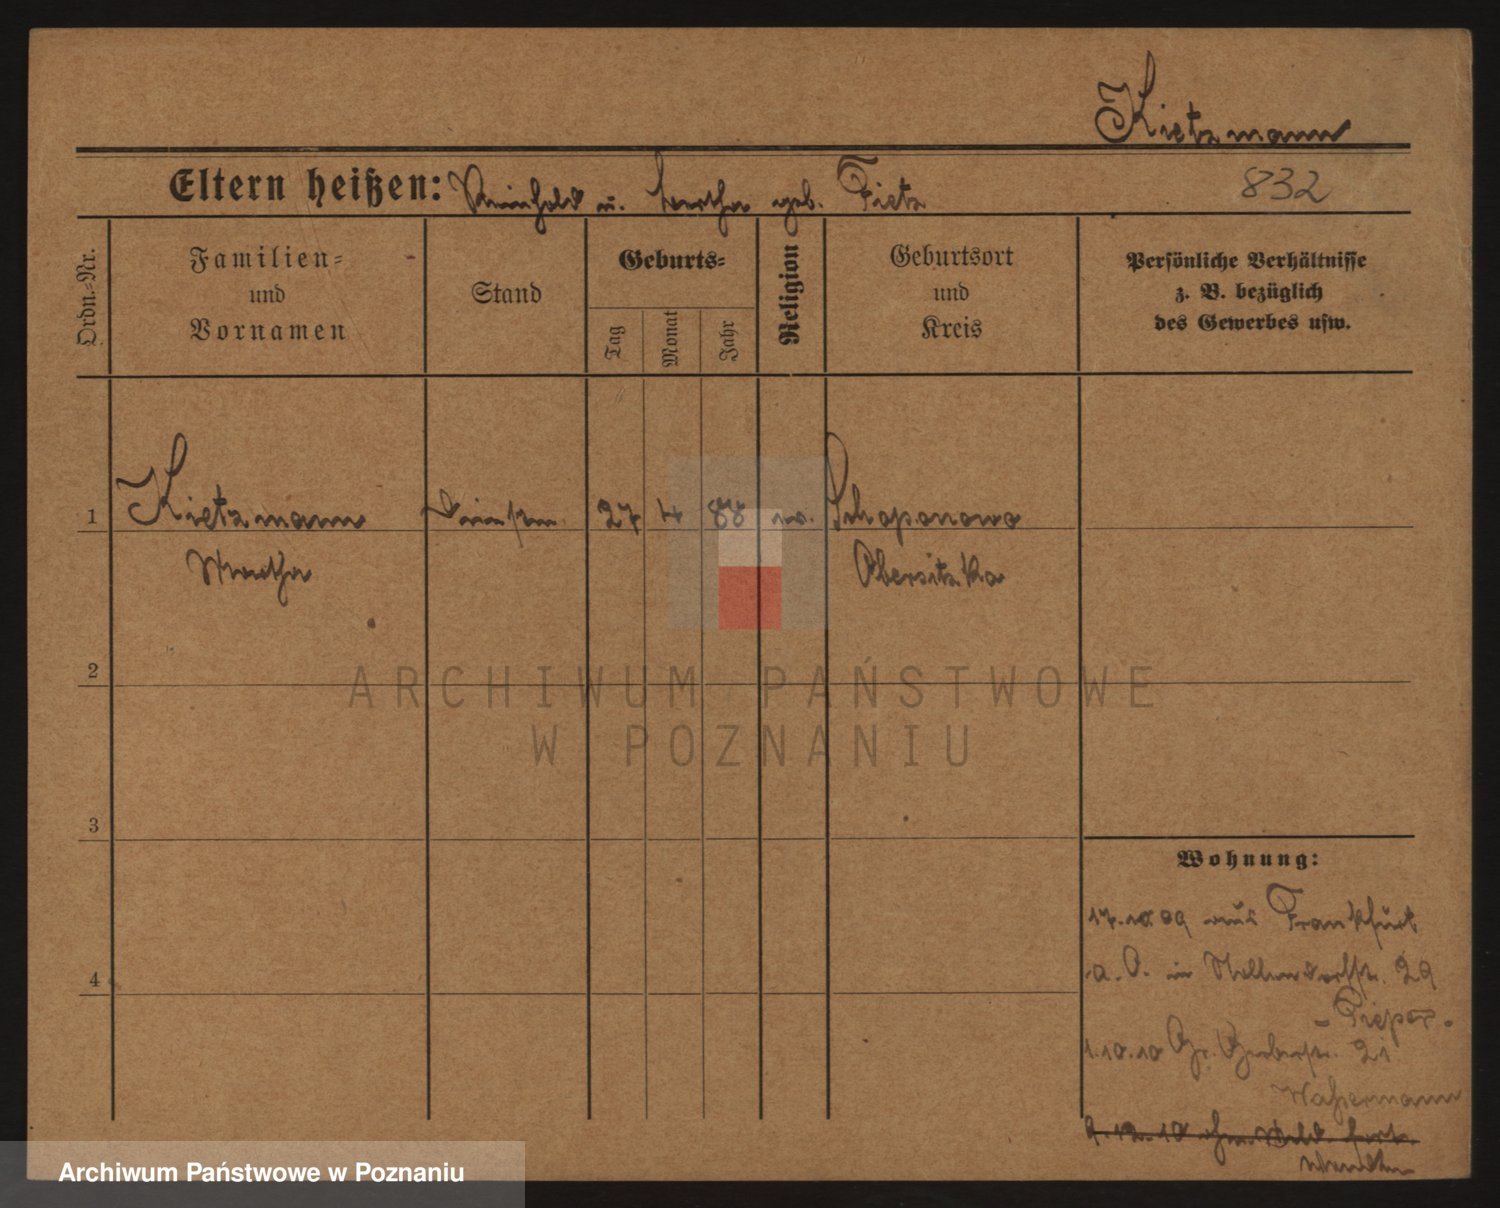 Kietzmann
Eltern heißen: Reinhold u. Bertha geb. Fietz
832
Ordn.-Nr.
Familien-
und
Vornamen
Stand
Geburts-
Tag
Monat
Jahr
Religion
Geburtsort
und
Kreis
Persönliche Verhältnisse
z. B. bezüglich
des Gewerbes usw.
1
Kietzmann
27 4 88
Obersitzko
2
ARCHIWUM PAŃSTWOWE
W POZNANIU
3
Wohnung:
17.10.09 aus Frankfurt
4
a. O. in 29
- Pieper -
1.10.10 Gr. Gerberstr. 21
Waßermann
9.12.10
Archiwum Państwowe w Poznaniu